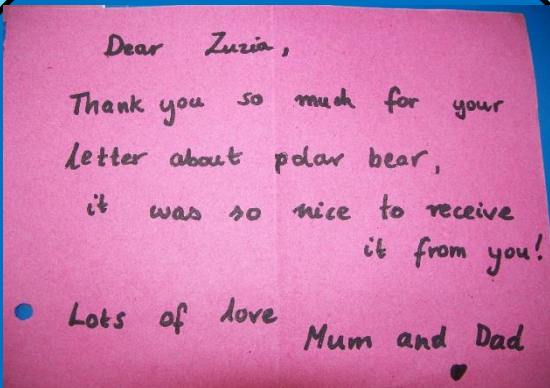 Dear Zuzia,
Thank you so much for your
letter about polar bear,
it was so nice to receive
it from you!
Lots of love
Mum and Dad